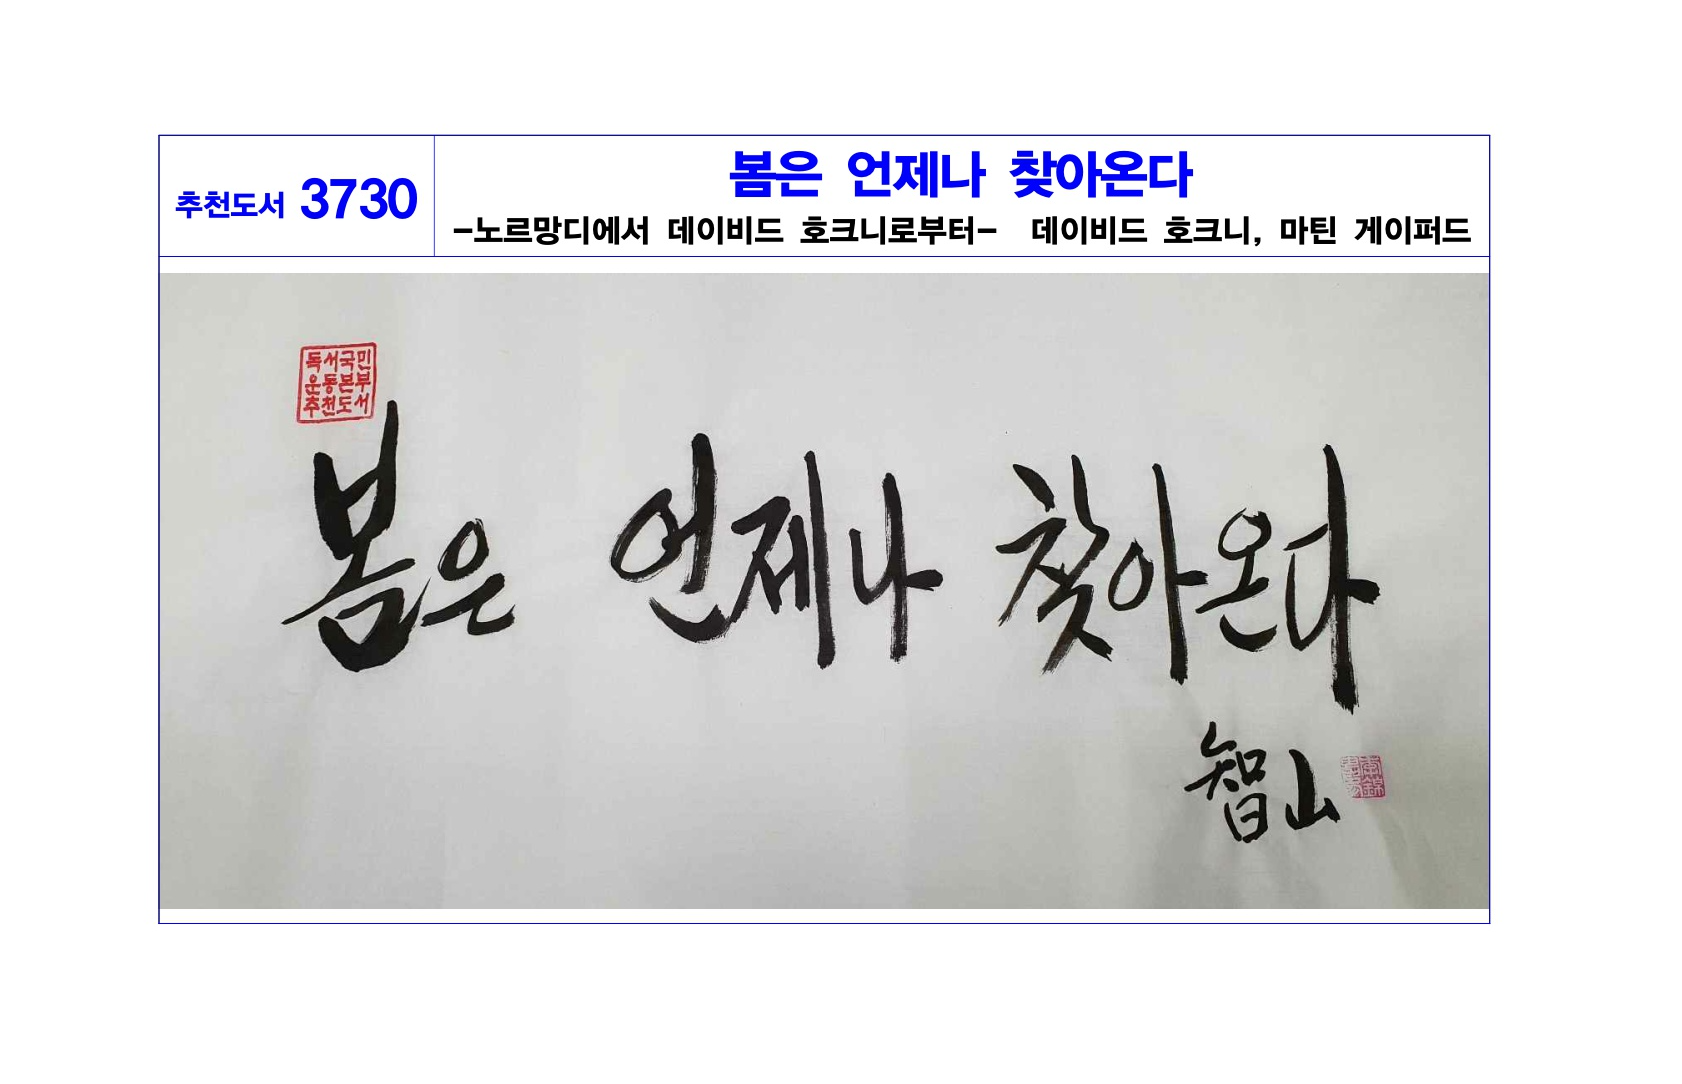 추천도서 3730
봄은 언제나 찾아온다
-노르망디에서 데이비드 호크니로부터- 데이비드 호크니, 마틴 게이퍼드
독서국민
운동본부
추천도서
봄은 언제나 찾아온다
智山